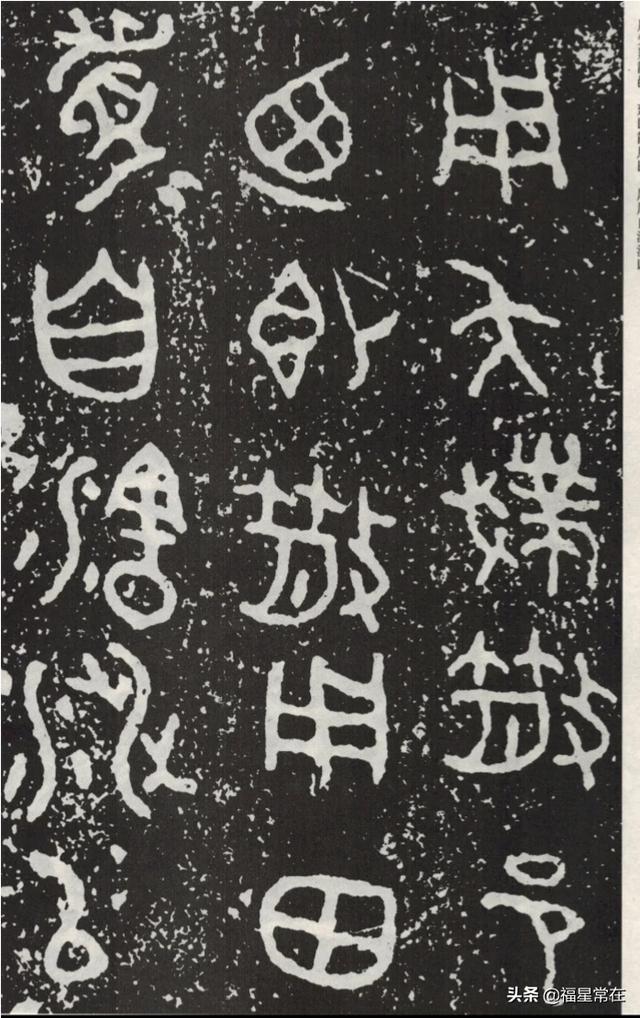 用夨撲散邑
廼即散用田
眉自瀗涉以
头条 @福星常在